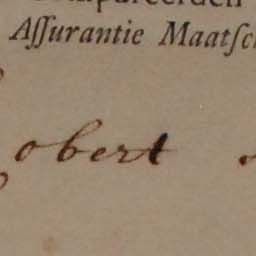 Aſſurantie Maatſc
obert